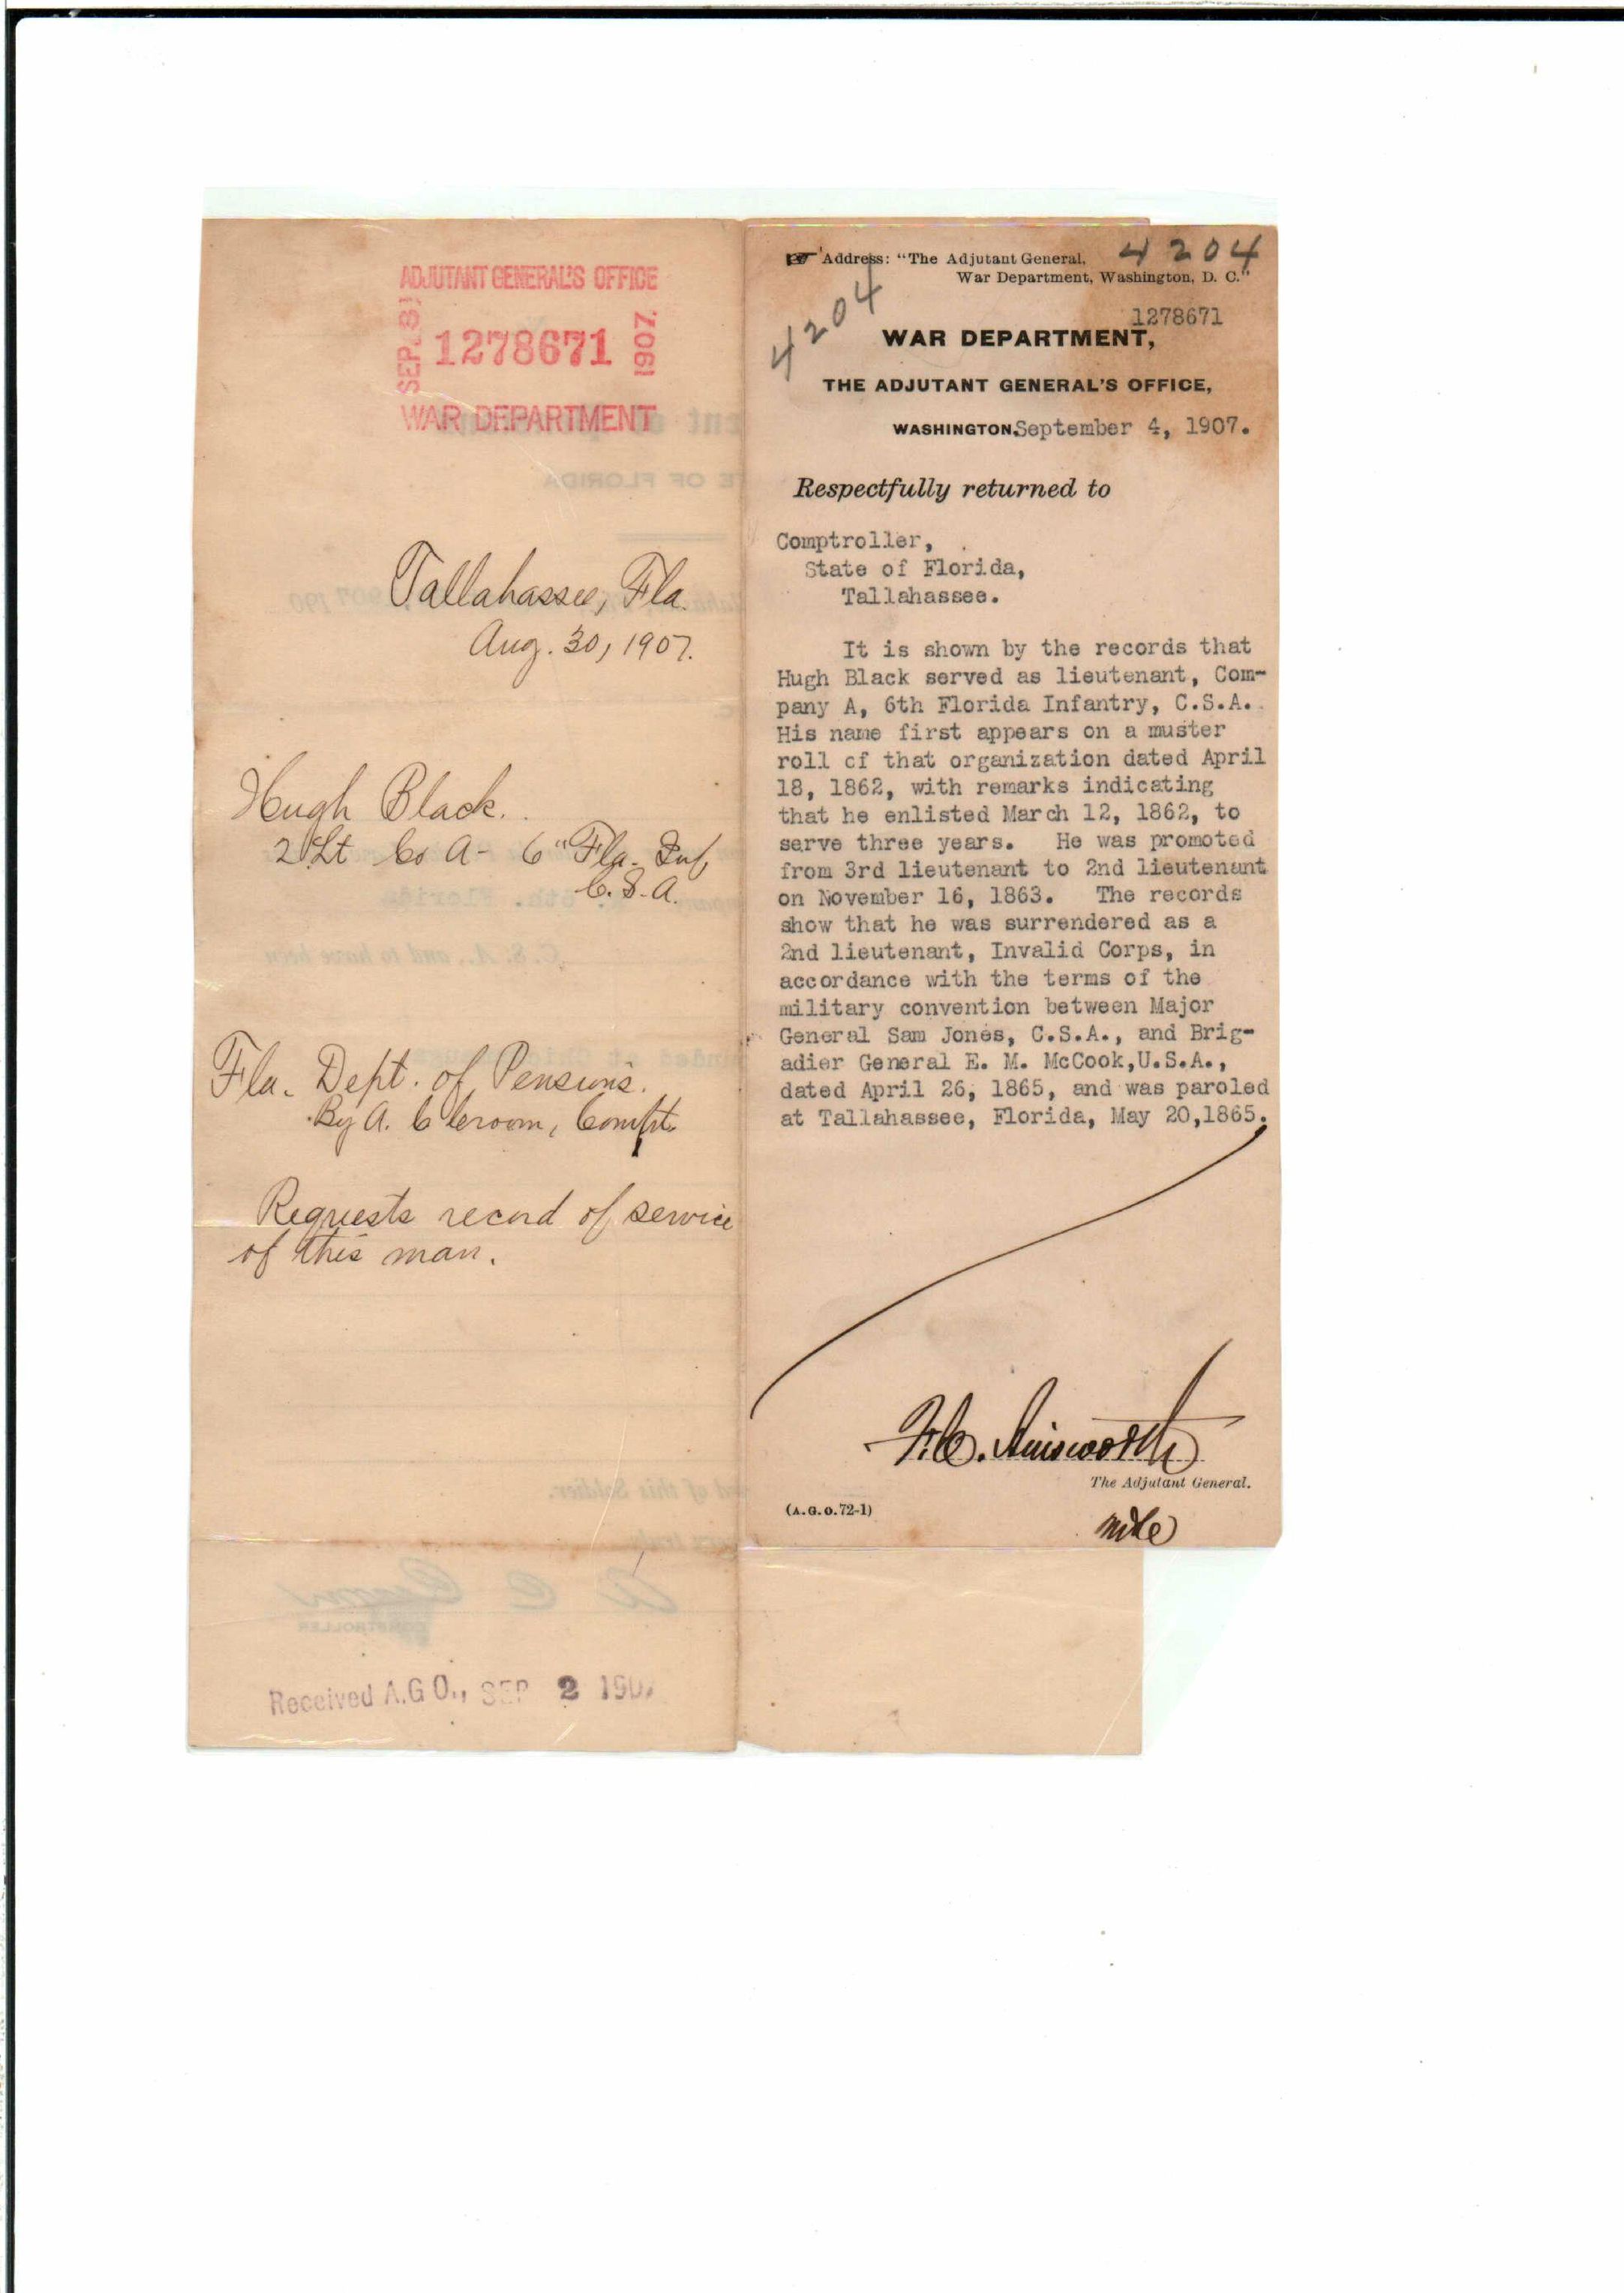 ADJUTANT GENERAL'S OFFICE
1278671
1907.
WAR DEPARTMENT
Tallahassee, Fla.
Aug. 30, 1907.
Hugh Black.
2 Lt Co A - 6" Fla. Inf,
C.S.A.
Fla. Dept. of Pensions.
By A. C Croom, Compt.
Requests record of service
of this man.
Received A.G.O., SEP 2 1907
4204
Address: "The Adjutant General,
War Department, Washington, D. C."
4204
1278671
WAR DEPARTMENT,
THE ADJUTANT GENERAL'S OFFICE,
WASHINGTON, September 4, 1907.
Respectfully returned to
Comptroller,
State of Florida,
Tallahassee.
It is shown by the records that
Hugh Black served as lieutenant, Com-
pany A, 6th Florida Infantry, C.S.A.
His name first appears on a muster
roll of that organization dated April
18, 1862, with remarks indicating
that he enlisted March 12, 1862, to
serve three years. He was promoted
from 3rd lieutenant to 2nd lieutenant
on November 16, 1863. The records
show that he was surrendered as a
2nd lieutenant, Invalid Corps, in
accordance with the terms of the
military convention between Major
General Sam Jones, C.S.A., and Brig-
adier General E. M. McCook, U.S.A.,
dated April 26, 1865, and was paroled
at Tallahassee, Florida, May 20, 1865.
F.C. Ainsworth
The Adjutant General.
(A.G.O. 72-1)